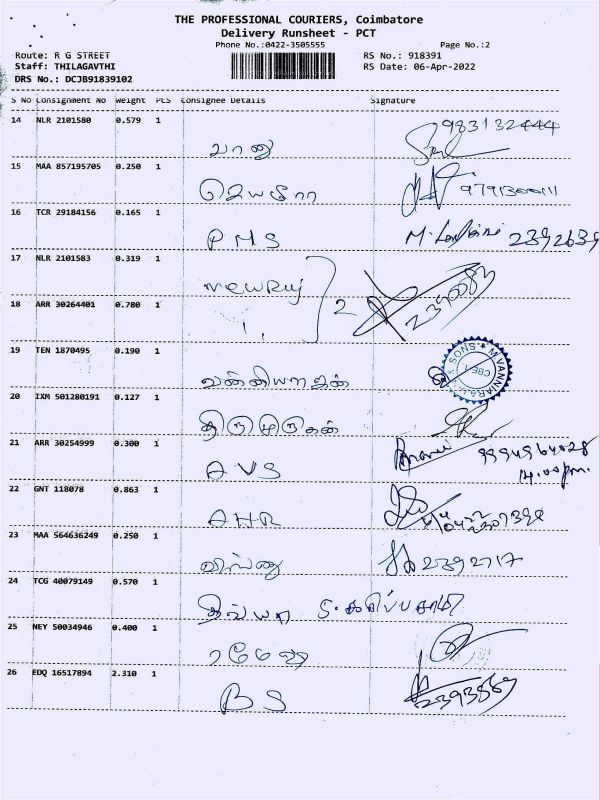 THE PROFESSIONAL COURIERS, Coimbatore
Delivery Runsheet - PCT
Phone No.:0422-3505555 Page No.:2
Route: R G STREET RS No.: 918391
Staff: THILAGAVTHI RS Date: 06-Apr-2022
DRS No.: DCJB91839102
S No Consignment No Weight PCS Consignee Details Signature
14 NLR 2101580 0.579 1 983132444
பானு
15 MAA 857195705 0.250 1
ஜெயஸ்ரீ
16 TCR 29184156 0.165 1
PMS 2392639
17 NLR 2101583 0.319 1
2
18 ARR 30264401 0.780 1
19 TEN 1870495 0.190 1
SONS
CBE-1
வன்னியராஜன்
20 IXM 501280191 0.127 1
திருமுருகன்
21 ARR 30254999 0.300 1
AVS 14.00pm.
22 GNT 118078 0.863 1
AHR
23 MAA 564636249 0.250 1
விஷ்ணு 2392717
24 TCG 40079149 0.570 1
திவ்யா S. கருப்பசாமி
25 NEY 50034946 0.400 1
ரமேஷ்
26 EDQ 16517894 2.310 1
BS 2393869